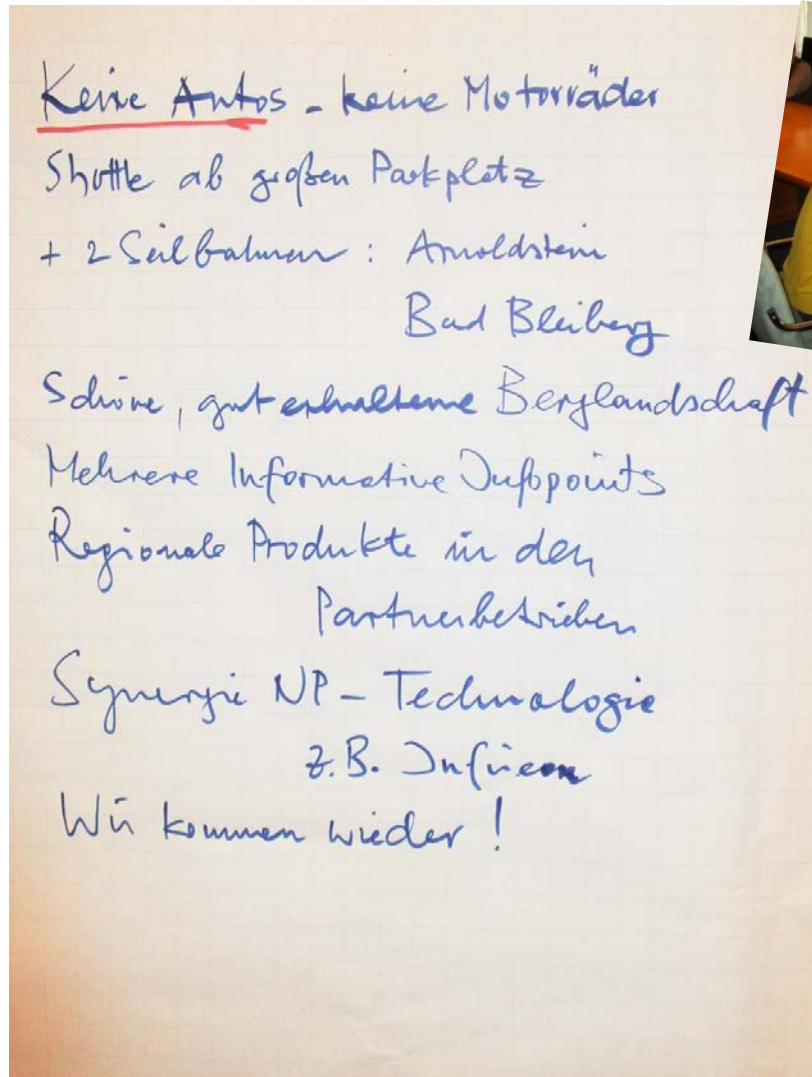 Keine Autos - keine Motorräder
Shuttle ab großen Parkplatz
+ 2 Seilbahnen : Arnoldstein
Bad Bleiberg
Schöne, gut erhaltene Berglandschaft
Mehrere Informative Infopoints
Regionale Produkte in den
Partnerbetrieben
Synergie NP - Technologie
z.B.
Wir kommen wieder !